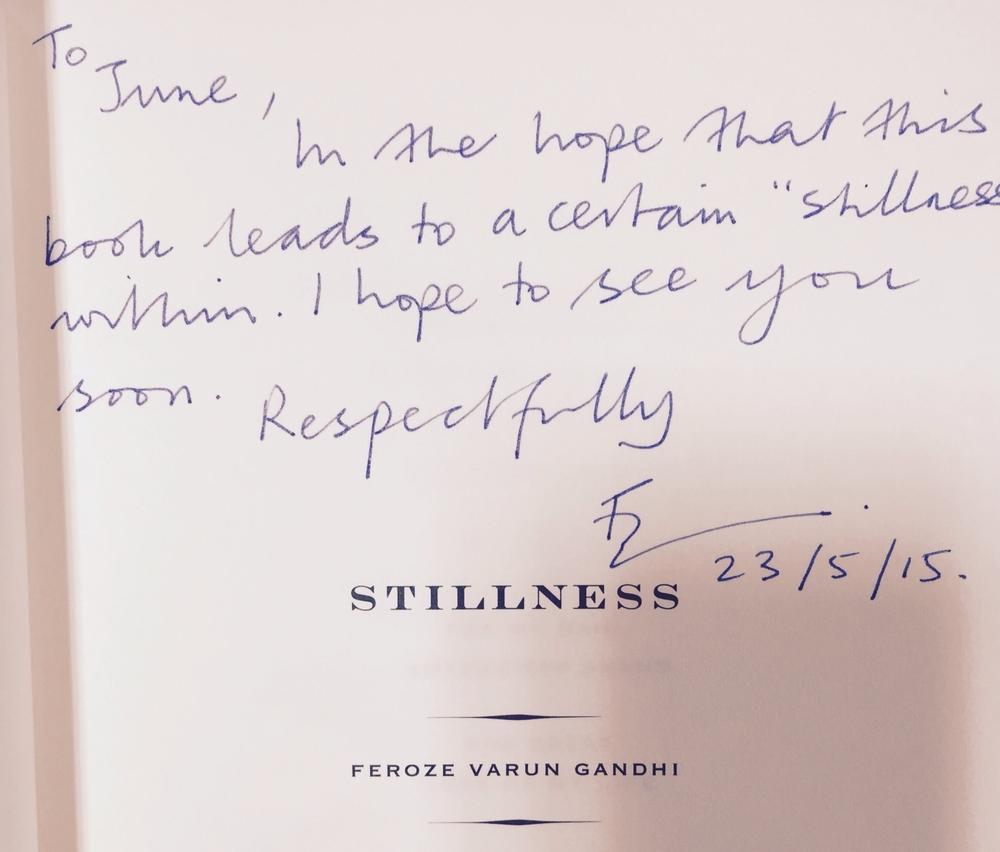 To
June,
In the hope that this
book leads to a certain "stillness
within. I hope to see you
soon. Respectfully
23/5/15.
STILLNESS
FEROZE VARUN GANDHI